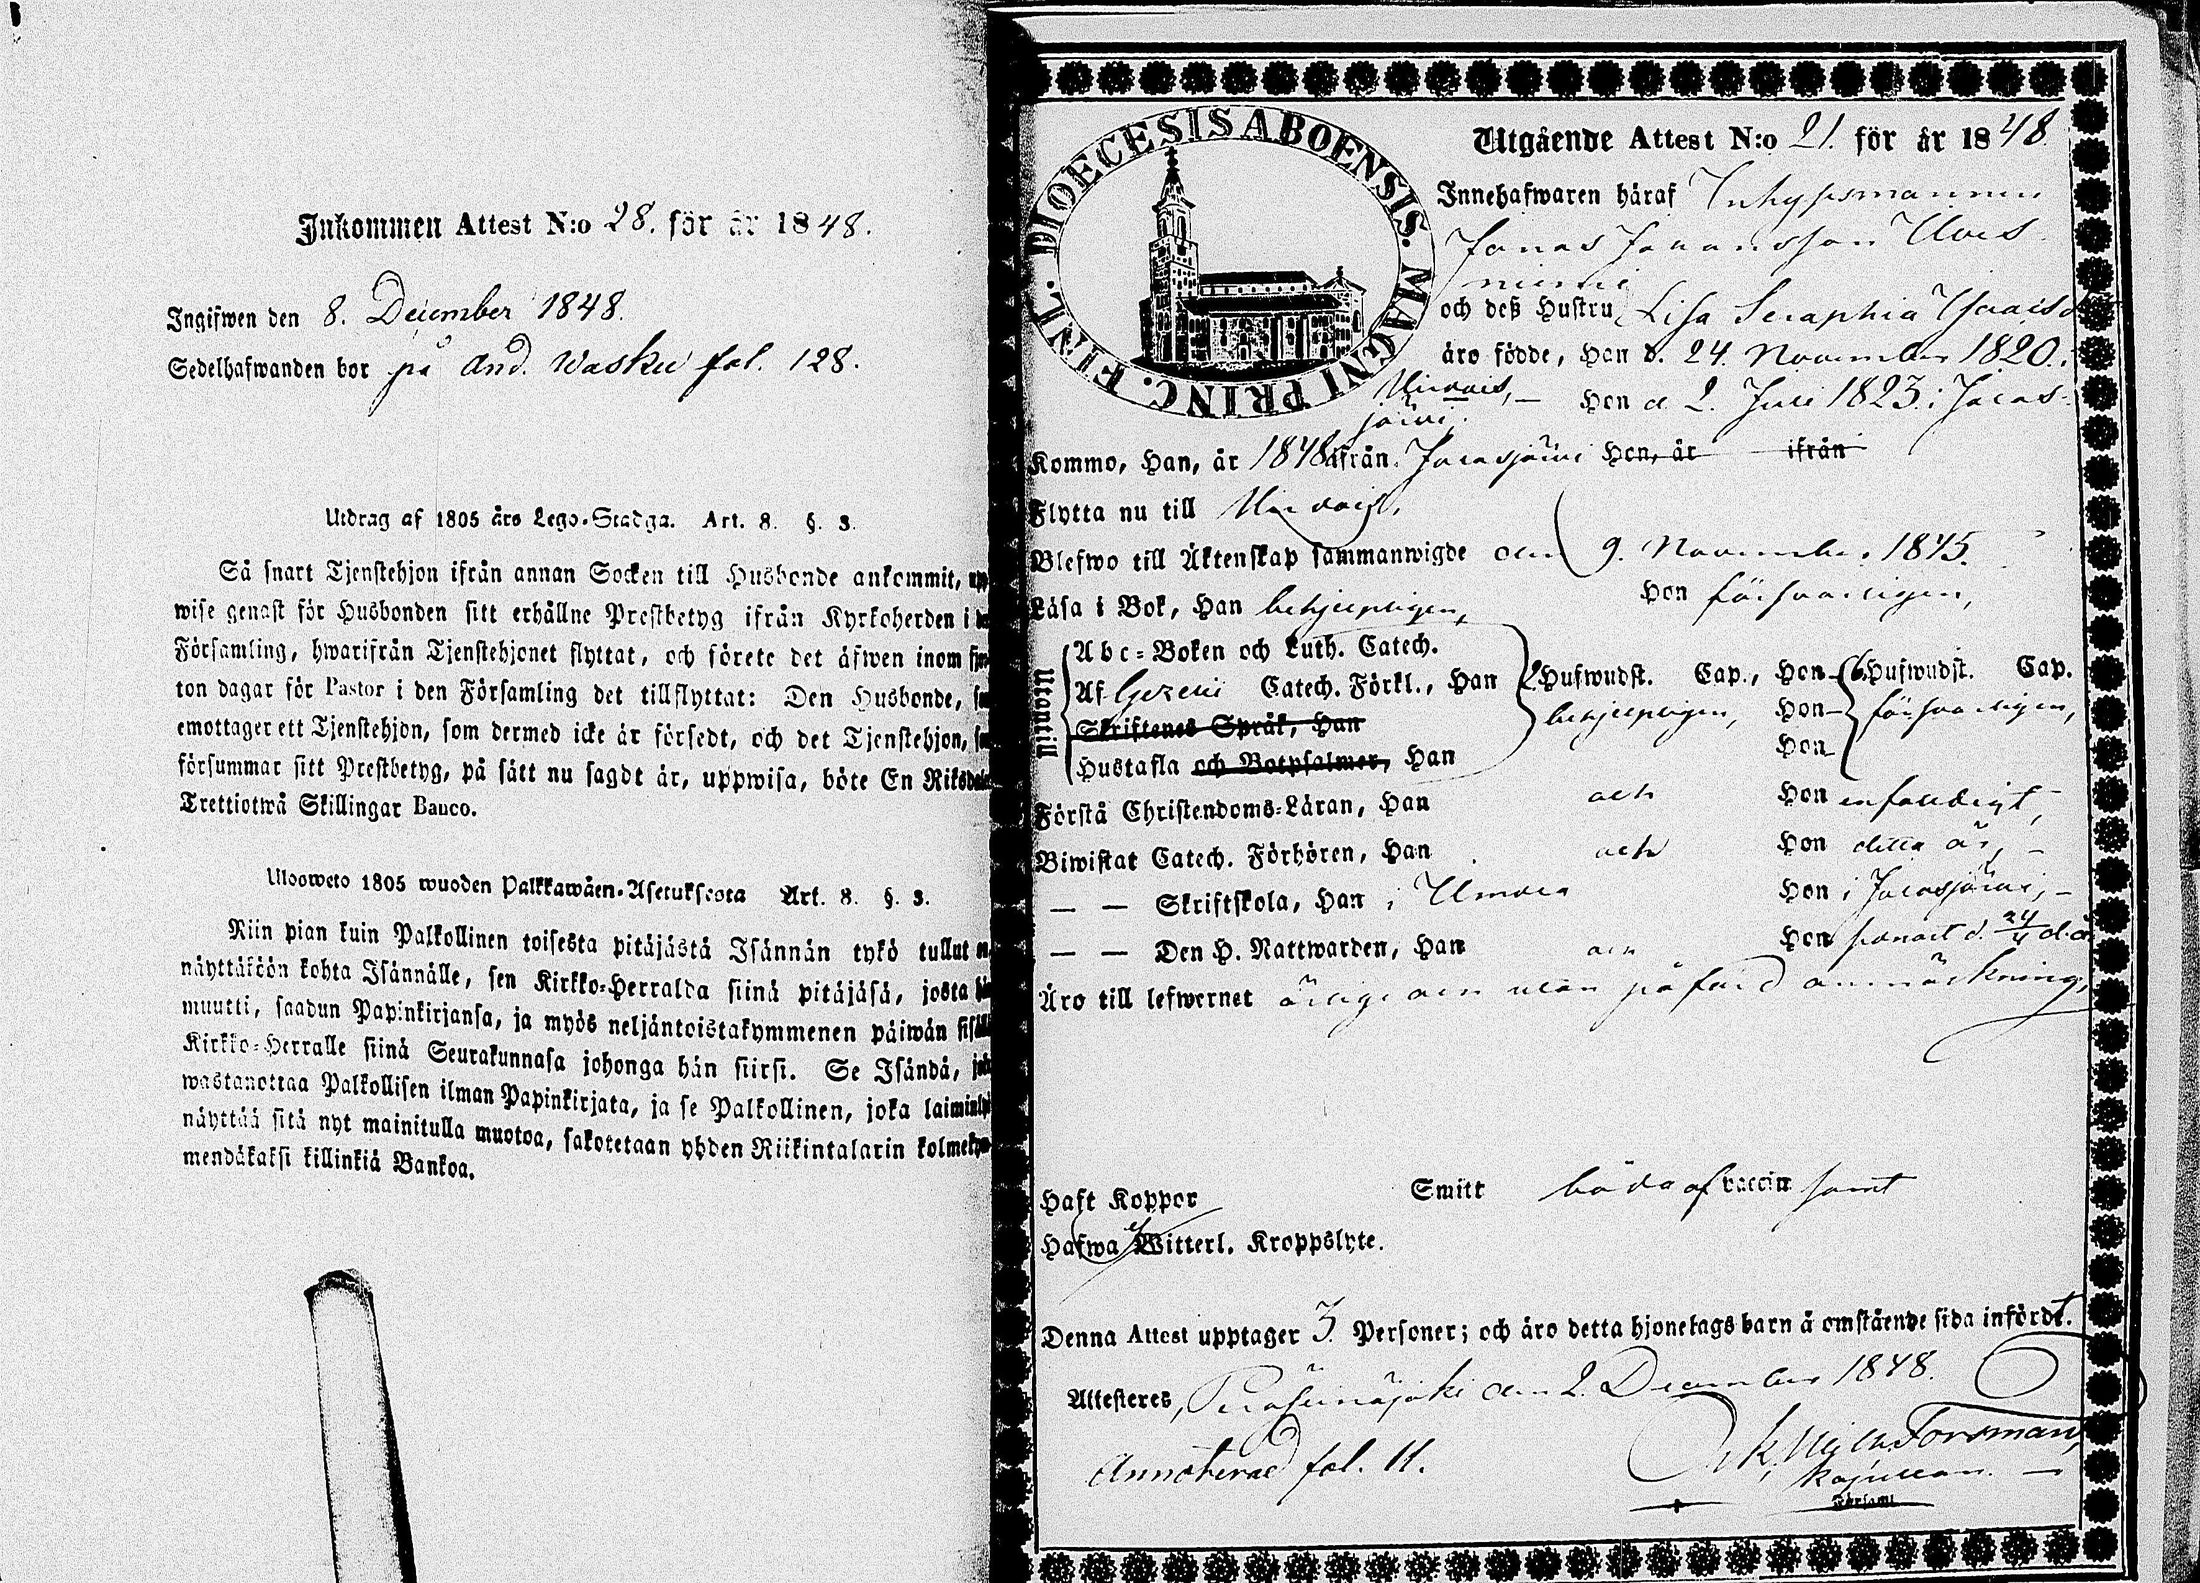 Inkommen Attest N:o 28. för år 1848.
Ingifwen den 8. December 1848.
Sedelhafwanden bor på And. Wasku fol. 128.
Utdrag af 1805 års Lego-Stadga. Art. 8. §. 3.
Så snart Tjenstehjon ifrån annan Socken till Husbonde ankommit, up
wise genast för Husbonden sitt erhållne Prestbetyg ifrån Kyrkoherden i de
Församling, hwarifrån Tjenstehjonet flyttat, och förete det äfwen inom fjor
ton dagar för Pastor i den Församling det tillflyttat: Den Husbonde, so
emottager ett Tjenstehjon, som dermed icke är försedt, och det Tjenstehjon, so
försummar sitt Prestbetyg, på sätt nu sagdt är, uppwisa, böte En Riksdaler
Trettiotwå Skillingar Banco.
Uloosweto 1805 wuoden Palkkawäen-Asetuksesta Art. 8. §. 3.
Niin pian kuin Palkollinen toisesta pitäjästä Isännän tykö tullut on
näyttäköön kohta Isännälle, sen Kirkko-Herralda siinä pitäjäsä, josta hän
muutti, saadun Papinkirjansa, ja myös neljäntoistakymmenen päiwän sisäll
Kirkko-Herralle siinä Seurakunnasa johonga hän siirsi. Se Isändä, jok
wastanottaa Palkollisen ilman Papinkirjata, ja se Palkollinen, joka laiminly
näyttää sitä nyt mainitulla muotoa, sakotetaan yhden Riikintalarin kolmeky
mendäkaksi killinkiä Bankoa.
DIOECESIS ABOENSIS. MAGNI PRINC. FINL.
Utgående Attest N:o 21. för år 1848.
Innehafwaren häraf Inhysesmannen
Jonas Johansson
och deß Hustru Lisa Seraphia
äro födde, Han d. 24. November 1820.
Hon d. 2. Juli 1823. i Jalas-
järvi.
Kommo, Han, år 1848 ifrån Jalasjärvi Hon, år ifrån
Flytta nu till
Blefwo till Äktenskap sammanwigde den 9. November 1845.
Läsa i Bok, Han behjelpligen, Hon försvarligen,
Utantill
Abc-Boken och Luth. Catech.
Af Gezelii Catech. Förkl., Han 2 Hufwudst. Cap., Hon 6 Hufwudst. Cap.
Skriftenes Språk, Han behjelpligen, Hon försvarligen,
Hustafla och Botpsalmer, Han Hon
Förstå Christendoms-Läran, Han och Hon enfaldigt,
Biwistat Catech. Förhören, Han och Hon detta år,
— — Skriftskola, Han i Ilmola Hon i Jalasjärvi, —
— — Den H. Nattwarden, Han och Hon senast d. 24/11 d.å.
Äro till lefwernet ärlige och utan påförd anmärkning,
Haft Koppor Smitt båda af vaccin samt
Hafwa ej Witterl. Kroppslyte.
Denna Attest upptager 3. Personer; och äro detta hjonelags barn å omstående sida infördt.
Attesteres, Peräseinäjoki den 2. December 1848.
Forsman,
kapellan.
Församl
Annoterad fol. 11.